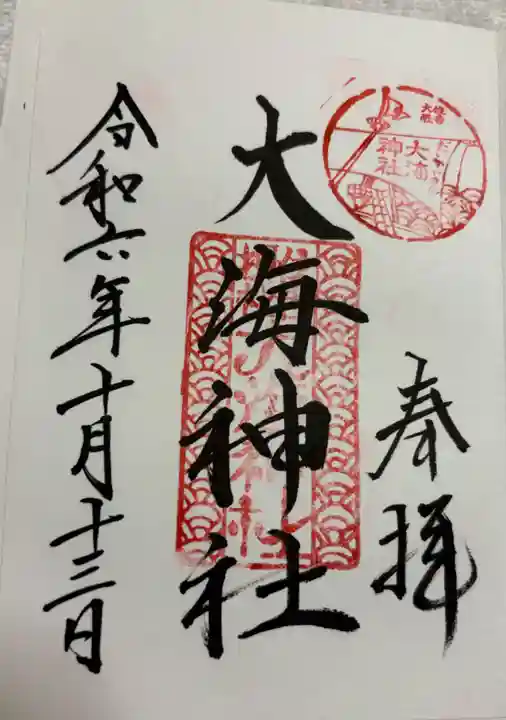 奉拝
大海神社
令和六年十月十三日
住吉
大社
だいかい
大海
神社